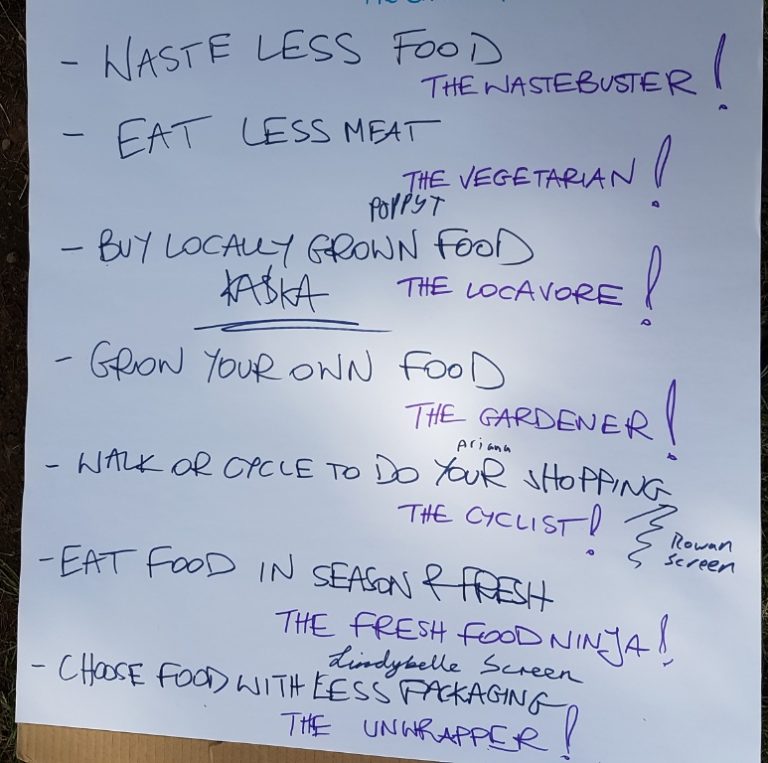 - WASTE LESS FOOD
THE WASTEBUSTER!
- EAT LESS MEAT
THE VEGETARIAN!
POPPYT
- BUY LOCALLY GROWN FOOD
KASKA
THE LOCAVORE!
- GROW YOUR OWN FOOD
THE GARDENER!
Ariana
- WALK OR CYCLE TO DO YOUR SHOPPING
THE CYCLIST!
Rowan
Screen
- EAT FOOD IN SEASON & FRESH
THE FRESH FOOD NINJA!
Lindybelle Screen
- CHOOSE FOOD WITH LESS PACKAGING
THE UNWRAPPER!